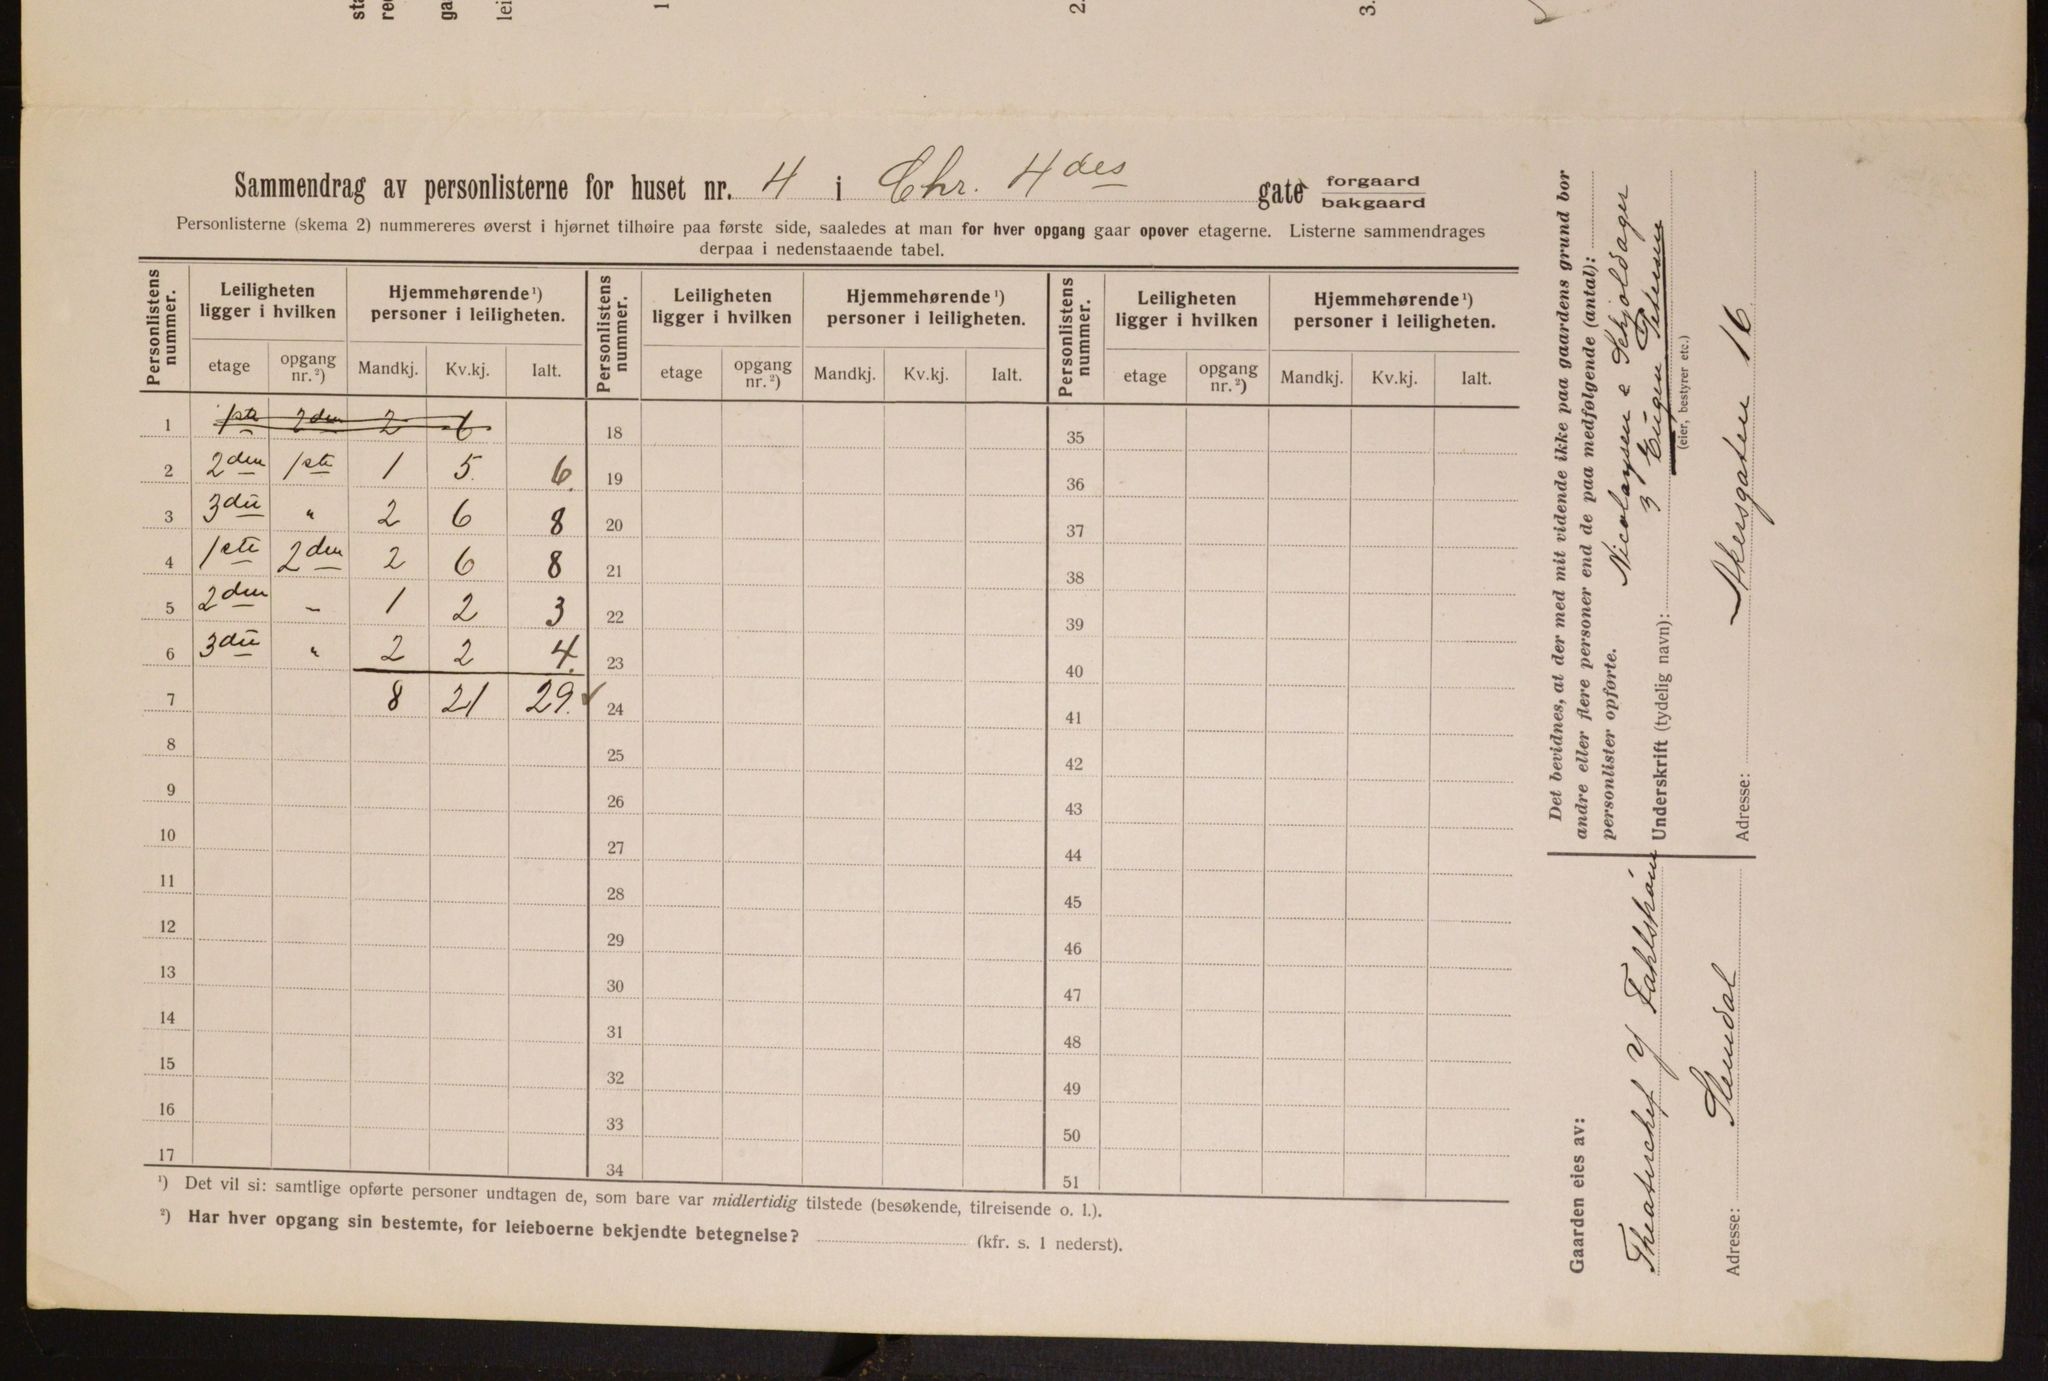 sta
red
ga
lei
1
2.
3.
Sammendrag av personlisterne for huset nr. 4 i Chr. 4des gate forgaard
bakgaard
Personlisterne (skema 2) nummereres øverst i hjørnet tilhøire paa første side, saaledes at man for hver opgang gaar opover etagerne. Listerne sammendrages
derpaa i nedenstaaende tabel.
Personlistens nummer. Leiligheten ligger i hvilken Hjemmehørende ¹) personer i leiligheten. Personlistens nummer. Leiligheten ligger i hvilken Hjemmehørende ¹) personer i leiligheten. Personlistens nummer. Leiligheten ligger i hvilken Hjemmehørende ¹) personer i leiligheten.
etage opgang nr. ²) Mandkj. Kv.kj. Ialt. etage opgang nr. ²) Mandkj. Kv.kj. Ialt. etage opgang nr. ²) Mandkj. Kv.kj. Ialt.
1 1ste 2den 2 6 18 35
2 2den 1ste 1 5 6. 19 36
3 3die " 2 6 8 20 37
4 1ste 2den 2 6 8 21 38
5 2den – 1 2 3 22 39
6 3die " 2 2 4. 23 40
7 8 21 29. ✓ 24 41
8 25 42
9 26 43
10 27 44
11 28 45
12 29 46
13 30 47
14 31 48
15 32 49
16 33 50
17 34 51
¹) Det vil si: samtlige opførte personer undtagen de, som bare var midlertidig tilstede (besøkende, tilreisende o. l.).
²) Har hver opgang sin bestemte, for leieboerne bekjendte betegnelse? (kfr. s. 1 nederst).
Det bevidnes, at der med mit vidende ikke paa gaardens grund bor
andre eller flere personer end de paa medfølgende (antal):
personlister opførte. Nicolaysen & Schjoldager
Underskrift (tydelig navn): Eugen Petersen
(eier, bestyrer etc.)
Adresse: Akersgaten 16
Gaarden eies av:
Theaterchef Fahlstrøm
Adresse: Slemdal